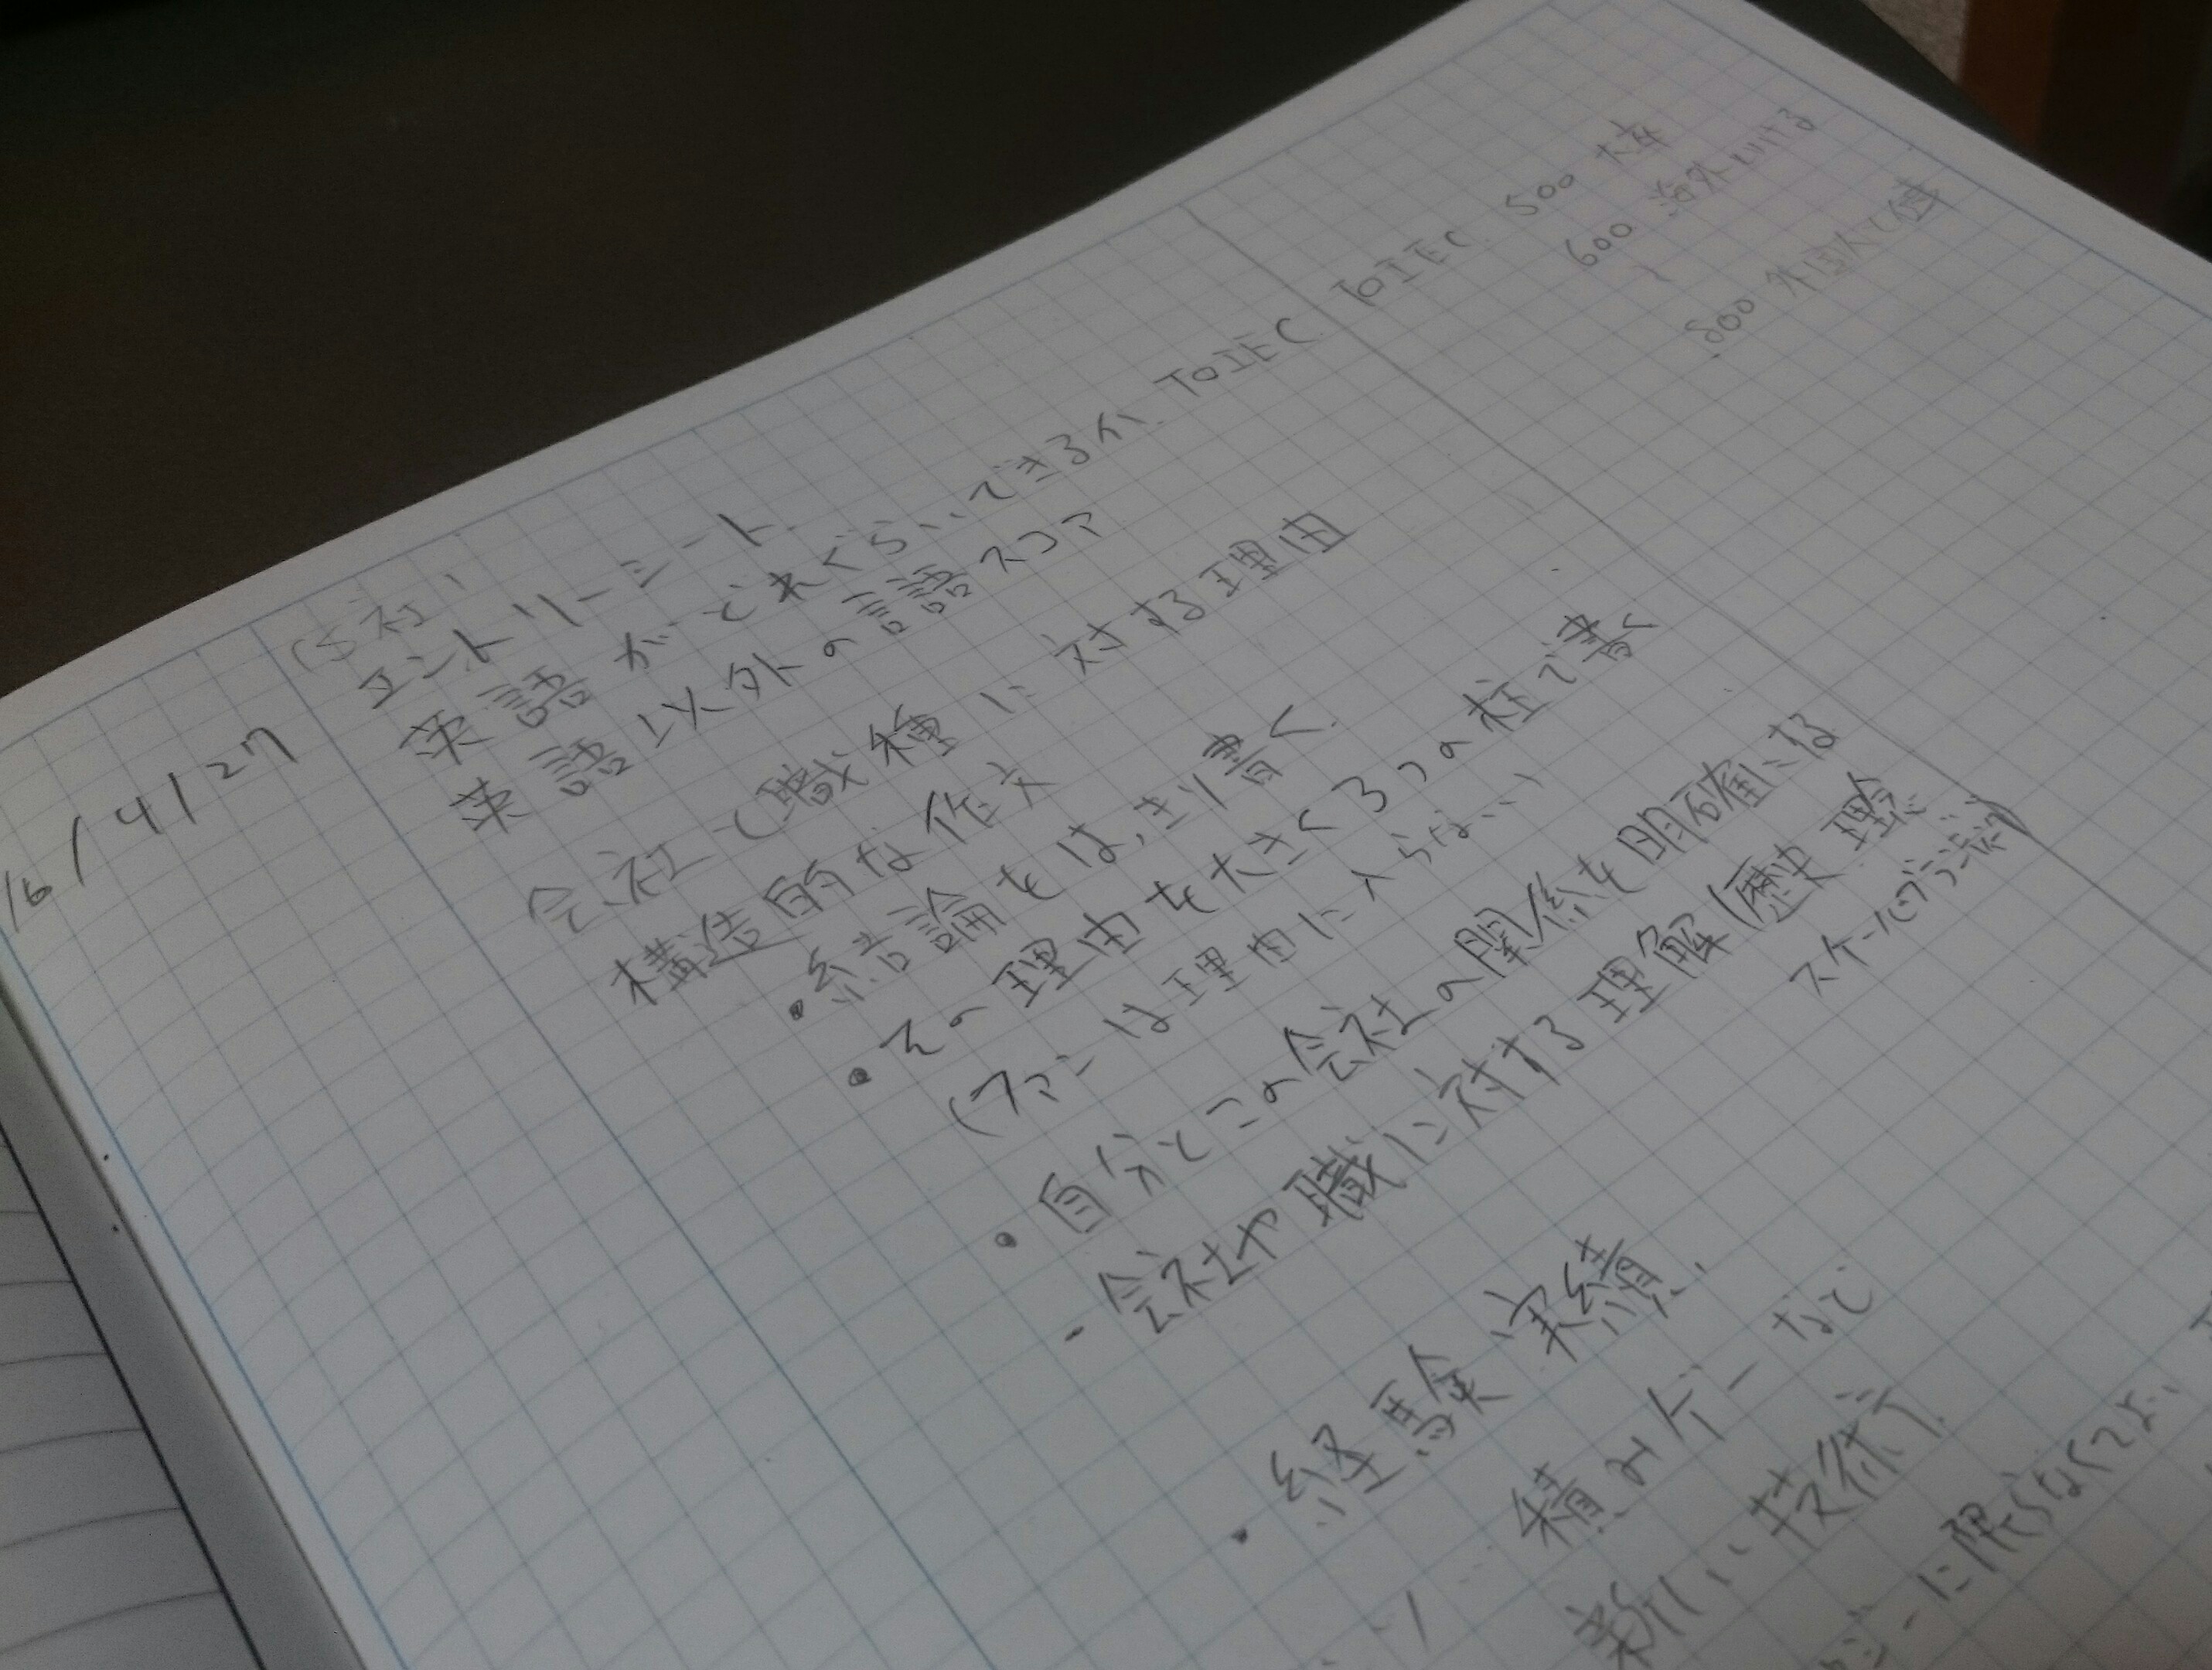 16/4/27
(5社)
エントリーシート
英語がどれぐらいできるか. TOIEC. TOIEC. 500 大卒
600 海外いける
~
800 外国人と仕事
英語以外の言語スコア
会社と職種に対する理由
構造的な作文
・結論をはっきり書く.
・その理由を大きく3つの柱で書く
(ファンは理由に入らない)
・自分とこの会社の関係を明確にな
- 会社や職に対する理解(歴史 理念
スケールのデカさ)
・経験 実績.
積みゲーなど
新しい技術.
に限らなくてよい